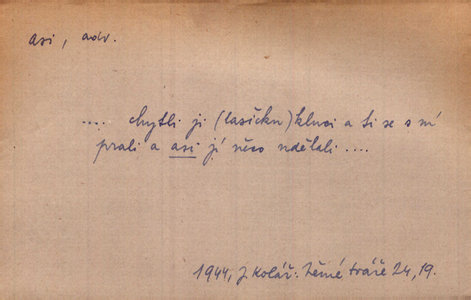 asi, adv.
.... chytli ji (lasičku) kluci a ti se s ní
prali a asi jí něco udělali ....
1944, J. Kolář: Němé tváře 24, 19.